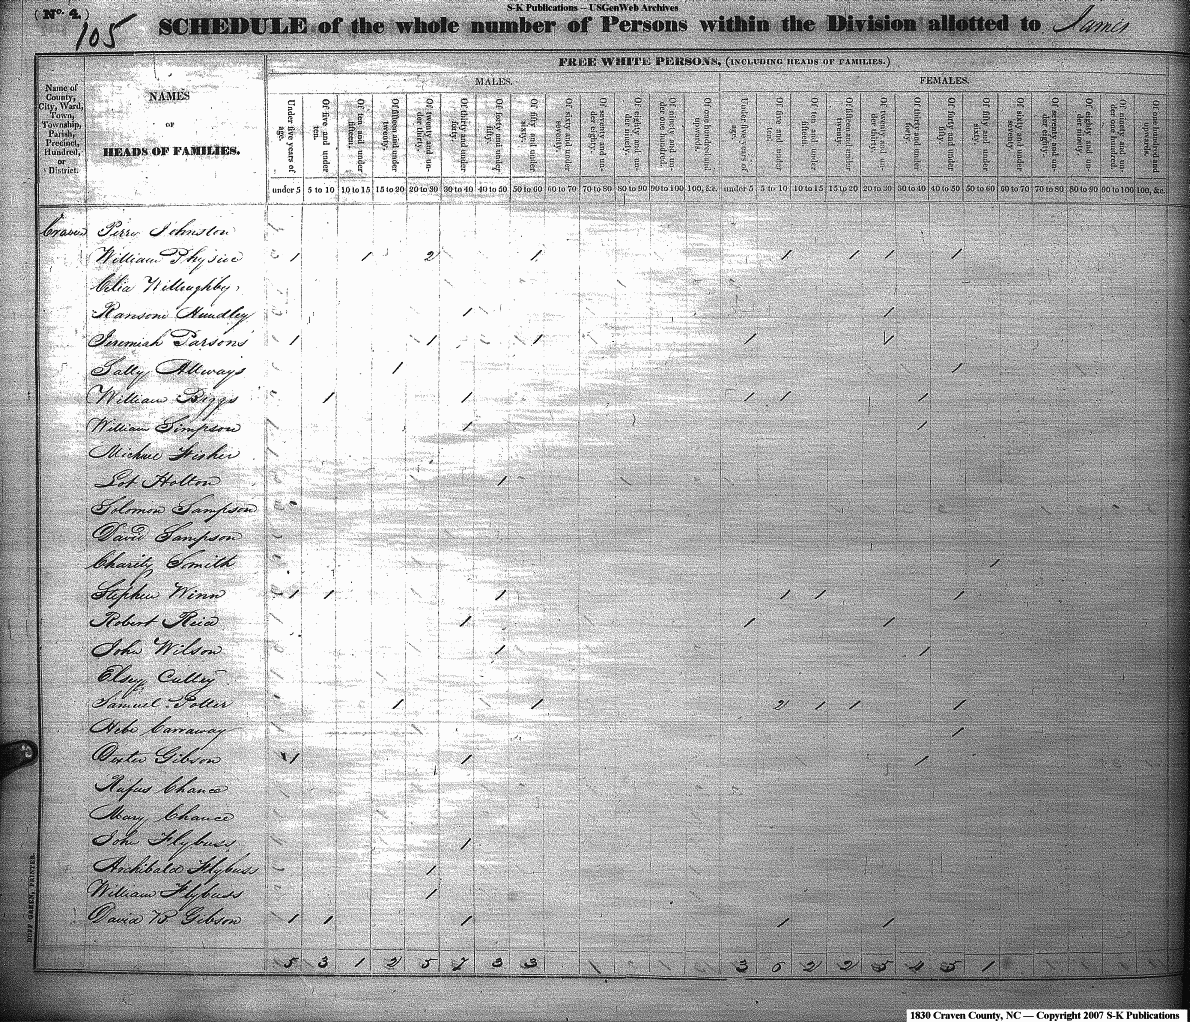 S-K Publications – USGenWeb Archives
( No. 4. )
105
SCHEDULE of the whole number of Persons within the Division allotted to James
FREE WHITE PERSONS, (INCLUDING HEADS OF FAMILIES.)
MALES. FEMALES.
Name of County, City, Ward, Town, Township, Parish, Precinct, Hundred, or District.
NAMES
OF
HEADS OF FAMILIES.
Under five years of age. Of five and under ten. Of ten and under fifteen. Of fifteen and under twenty. Of twenty and under thirty. Of thirty and under forty. Of forty and under fifty. Of fifty and under sixty. Of sixty and under seventy. Of seventy and under eighty. Of eighty and under ninety. Of ninety and under one hundred. Of one hundred and upwards. Under five years of age. Of five and under ten. Of ten and under fifteen. Of fifteen and under twenty. Of twenty and under thirty. Of thirty and under forty. Of forty and under fifty. Of fifty and under sixty. Of sixty and under seventy. Of seventy and under eighty. Of eighty and under ninety. Of ninety and under one hundred. Of one hundred and upwards.
under 5 5 to 10 10 to 15 15 to 20 20 to 30 30 to 40 40 to 50 50 to 60 60 to 70 70 to 80 80 to 90 90 to 100 100, &c. under 5 5 to 10 10 to 15 15 to 20 20 to 30 30 to 40 40 to 50 50 to 60 60 to 70 70 to 80 80 to 90 90 to 100 100, &c.
Craven Perry Johnston
William Physioc 1 1 2 1 1 1 1 1
Celia Willoughby
Ransom Hundley 1 1
Jeremiah Parsons 1 1 1 1 1
Sally Allways 1 1
William Biggs 1 1 1 1 1
William Simpson 1 1
Michael Fisher
Lot Holton 1
Solomon Sampson
David Sampson
Charity Smith 1
Stephen Winn 1 1 1 1 1 1
Robert Reid 1 1 1
John Wilson 1 1
Elsey Culley
Samuel Potter 1 1 2 1 1 1
Carraway 1
Gibson 1 1 1
Rufus Chance
Mary Chance
John Flybuss 1
Archibald Flybuss 1
William Flybuss 1
David B Gibson 1 1 1 1 1
5 3 1 2 5 7 3 3 3 6 2 2 5 4 5 1
1830 Craven County, NC — Copyright 2007 S-K Publications